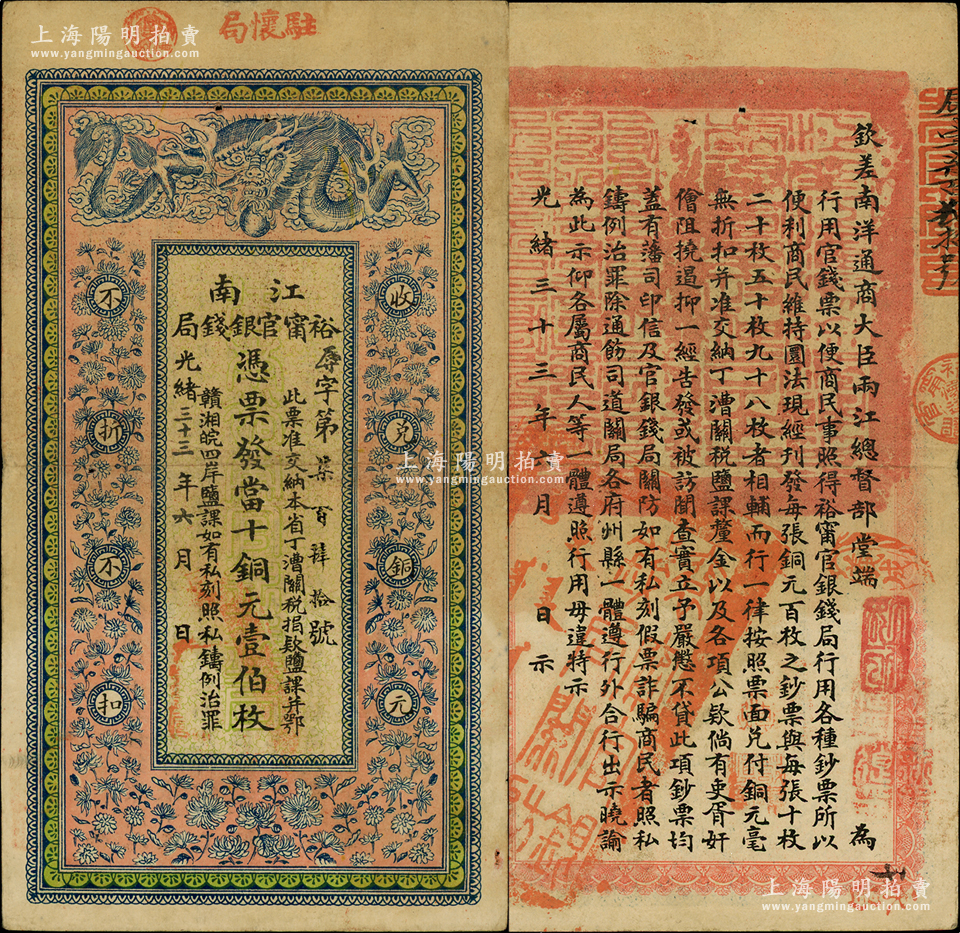 駐懷局
上海陽明拍賣
www.yangmingauction.com
江南
裕甯官銀錢局
辱字第柒百肆拾號
此票准交納本省丁漕關稅捐欵鹽課并鄂
憑票發當十銅元壹伯枚
贛湘皖四岸鹽課如有私刻照私鑄例治罪
光緒三十三年六月 日
收兌銅元
不折不扣
上海陽明拍賣
www.yangmingauction.com
上海陽明拍賣
www.yangmingauction.com
欽差南洋通商大臣兩江總督部堂端 為
行用官錢票以便商民事照得裕甯官銀錢局行用各種鈔票所以
便利商民維持圜法現經刊發每張銅元百枚之鈔票與每張十枚
二十枚五十枚九十八枚者相輔而行一律按照票面兌付銅元毫
無折扣并准交納丁漕關稅鹽課釐金以及各項公欵倘有吏胥奸
儈阻撓遏抑一經告發或被訪聞查實立予嚴懲不貸此項鈔票均
蓋有藩司印信及官銀錢局關防如有私刻假票詐騙商民者照私
鑄例治罪除通飭司道關局各府州縣一體遵行外合行出示曉諭
為此示仰各屬商民人等一體遵照行用毋違特示
光緒三十三年六月 日示
上海陽明拍賣
www.yangmingauction.com